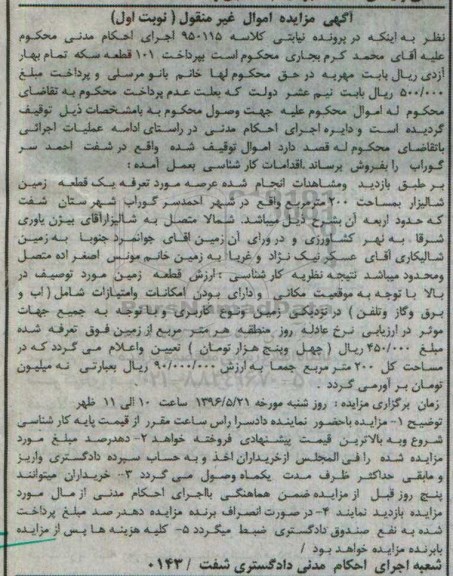 آگهی مزایده اموال غیر منقول ( نوبت اول)
نظر به اینکه در پرونده نیابتی کلاسه ۹۵۰۱۱۵ اجرای احکام مدنی محکوم
علیه آقای محمد کرم بجاری محکوم است بپرداخت ۱۰۱ قطعه سکه تمام بهار
آزدی ریال بابت مهریه در حق محکوم لها خانم بانو مرسلی و پرداخت مبلغ
۵۰۰/۰۰۰ ریال بابت نیم عشر دولت که بعلت عدم پرداخت محکوم به تقاضای
محکوم له اموال محکوم علیه جهت وصول محکوم به بامشخصات ذیل توقیف
گردیده است و دایره اجرای احکام مدنی در راستای ادامه عملیات اجرائی
باتقاضای محکوم له قصد دارد اموال توقیف شده واقع در شفت احمد سر
گوراب را بفروش برساند .اقدامات کارشناسی بعمل آمده :
بر طبق بازدید ومشاهدات انجام شده عرصه مورد تعرفه یک قطعه زمین
شالیزار بمساحت ۲۰۰ مترمربع واقع در شهر احمدسر گوراب شهرستان شفت
که حدود اربعه آن بشرح ذیل میباشد. شمالا متصل به شالیزارآقای بیژن یاوری
شرقا . به نهر کشاورزی و در ورای آن زمین اقای جوانمرد جنوبا به زمین
شالیکاری آقای عسکر نیک نژاد و غربا به زمین خانم مونس اصغر اده متصل
ومحدود میباشد نتیجه نظریه کارشناسی : ارزش قطعه زمین مورد توصیف در
بالا با توجه به موقعیت مکانی و دارای بودن امکانات وامتیازات شامل ( آب و
برق وگاز وتلفن ) در نزدیکی زمین ونوع کاربری و با توجه به جمیع جهات
موثر در ارزیابی نرخ عادله روز منطقه هر متر مربع از زمین فوق تعرفه شده
مبلغ ۴۵۰/۰۰۰ ریال ( چهل وپنج هزار تومان ) تعیین واعلام می گردد که در
مساحت کل ۲۰۰ متر مربع جمعا به ارزش ۹۰/۰۰۰/۰۰۰ ریال بعبارتی نه میلیون
تومان بر آورمی گردد .
زمان برگزاری مزایده : روز شنبه مورخه ۱۳۹۶/۵/۲۱ ساعت ۱۰ الی ۱۱ ظهر
توضیح ۱- مزایده باحضور نماینده دادسرا راس ساعت مقرر از قیمت پایه کارشناسی
شروع وبه بالاترین قیمت پیشنهادی فروخته خواهد ۲- دهدرصد مبلغ مورد
مزایده شده را فی المجلس ازخریداران اخذ و به حساب سپرده دادگستری واریز
و مابقی حداکثر ظرف مدت یکماه وصول می گردد ۳- خریداران میتوانند
پنج روز قبل از مزایده ضمن هماهنگی بااجرای احکام مدنی از مال مورد
مزایده بازدید نمایند ۴- در صورت انصراف برنده مزایده دهدر صد مبلغ پرداخت
شده به نفع صندوق دادگستری ضبط میگردد ۵- کلیه هزینه ها پس از مزایده
بابرنده مزایده خواهد بود /
شعبه اجرای احکام مدنی دادگستری شفت / ۰۱۴۳